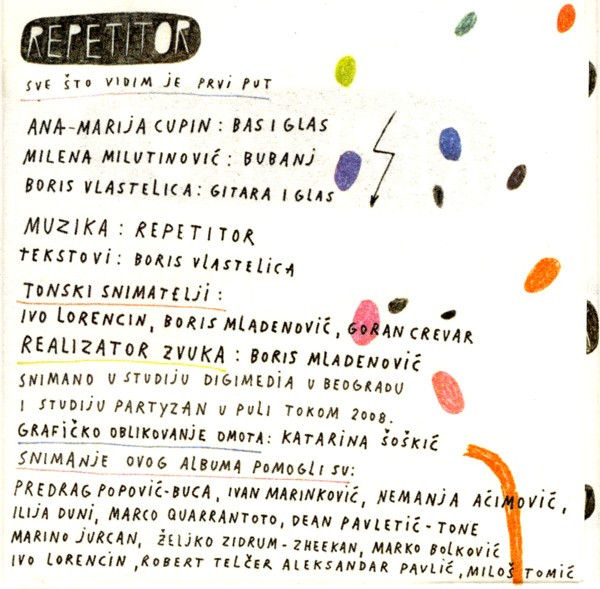 REPETITOR
SVE ŠTO VIDIM JE PRVI PUT
ANA-MARIJA CUPIN : BAS I GLAS
MILENA MILUTINOVIĆ : BUBANJ
BORIS VLASTELICA : GITARA I GLAS
MUZIKA : REPETITOR
TEKSTOVI : BORIS VLASTELICA
TONSKI SNIMATELJI :
IVO LORENCIN, BORIS MLADENOVIĆ, GORAN CREVAR
REALIZATOR ZVUKA : BORIS MLADENOVIĆ
SNIMANO U STUDIJU DIGIMEDIA U BEOGRADU
I STUDIJU PARTYZAN U PULI TOKOM 2008.
GRAFIČKO OBLIKOVANJE OMOTA: KATARINA ŠOŠKIĆ
SNIMANJE OVOG ALBUMA POMOGLI SU:
PREDRAG POPOVIĆ-BUCA, IVAN MARINKOVIĆ, NEMANJA AĆIMOVIĆ,
ILIJA DUNI, MARCO QUARRANTOTO, DEAN PAVLETIĆ-TONE
MARINO JURCAN, ŽELJKO ZIDRUM-ZHEEKAN, MARKO BOLKOVIĆ
IVO LORENCIN, ROBERT TELČER ALEKSANDAR PAVLIĆ, MILOŠ TOMIĆ